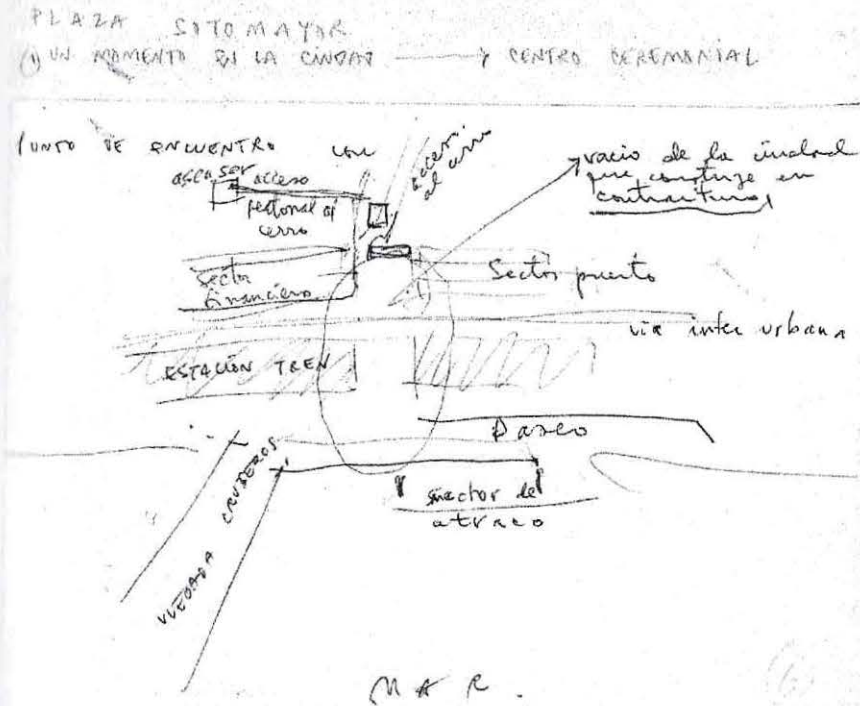 PLAZA SOTOMAYOR
(1) UN MOMENTO EN LA CIUDAD → CENTRO CEREMONIAL
PUNTO DE ENCUENTRO
ascensor acceso
peatonal al
cerro
acceso
al cerro
vacio de la ciudad
que construye en
Sector
financiero
Sector puerto
via inter urbana
ESTACIÓN TREN
Paseo
sector de
atraco
LLEGADA CRUSEROS
MAR.